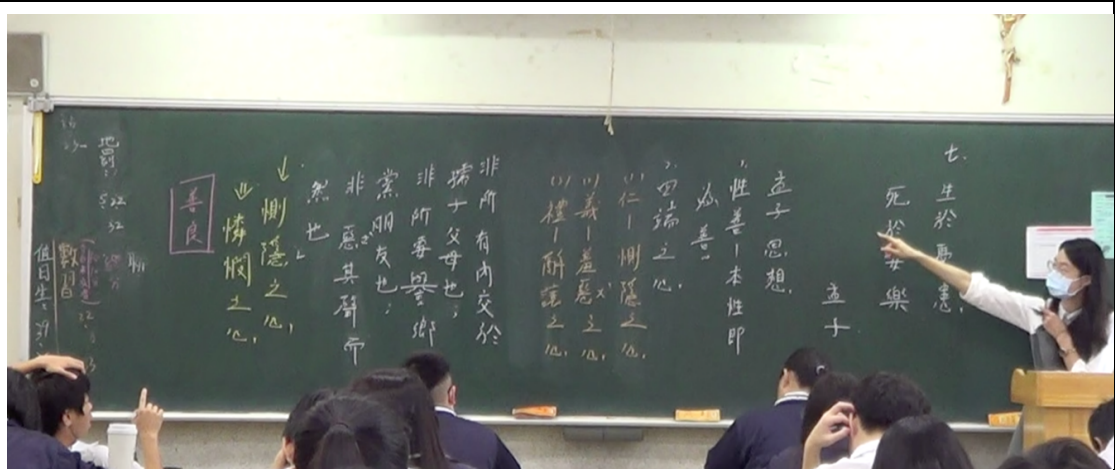 七.
生於憂患,
死於安樂
孟子
孟子思想,
1.性善-本性即
必善
2.四端之心,
(1)仁-惻隱之心,
(2)義-羞惡之心,
(3)禮-辭讓之心,
非所有內交於
孺子父母也,
非所要譽鄉
黨朋友也,
非惡其聲而
然也
惻隱之心,
憐憫之心,
善良
地
數
值日生: